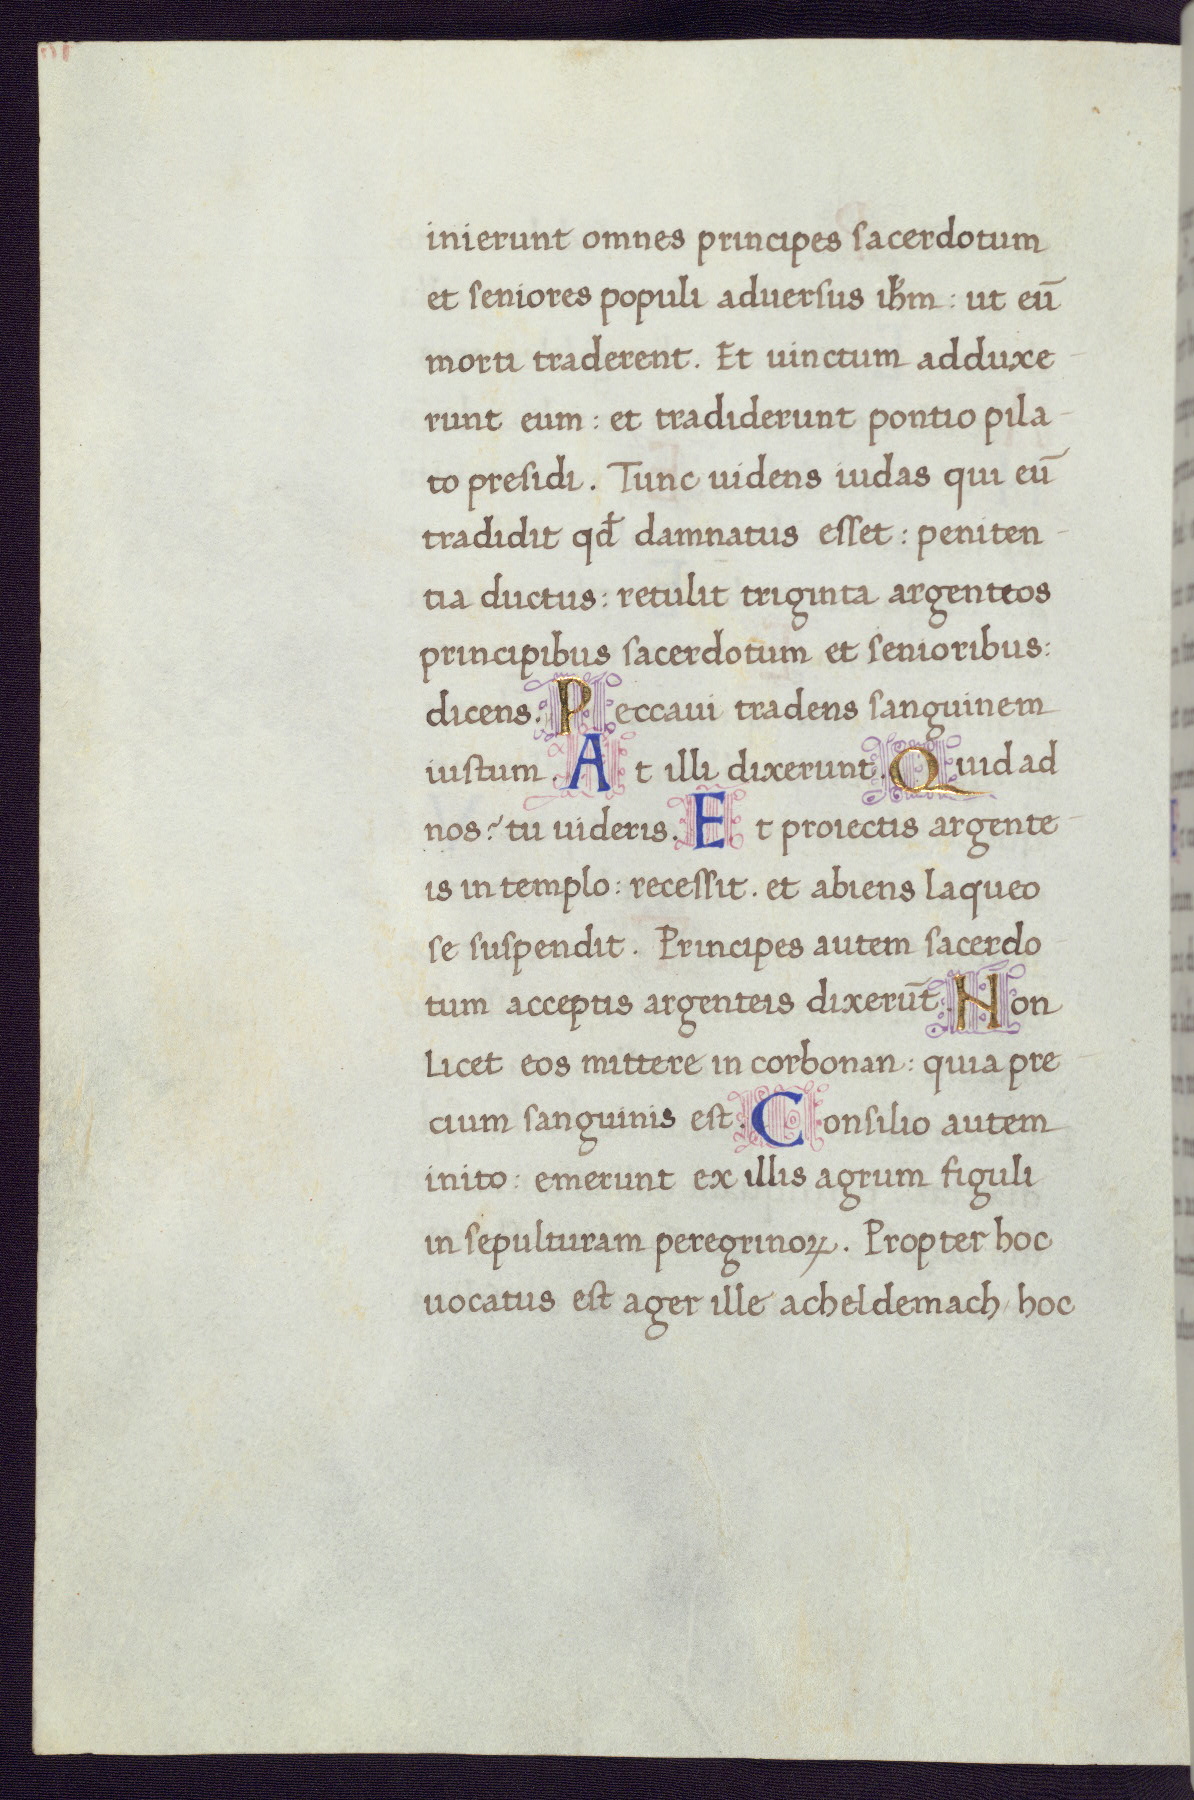 inierunt omnes principes sacerdotum
et seniores populi aduersus ihm̄ : ut eū
morti traderent. Et uinctum adduxe-
runt eum : et tradiderunt pontio pila-
to presidi. Tunc uidens iudas qui eū
tradidit qđ damnatus esset : peniten-
tia ductus : retulit triginta argenteos
principibus sacerdotum et senioribus :
dicens. Peccaui tradens sanguinem
iustum. At illi dixerunt. Quid ad
nos? tu uideris. Et proiectis argente-
is in templo : recessit. et abiens laqueo
se suspendit. Principes autem sacerdo-
tum acceptis argenteis dixerūt. Non
licet eos mittere in corbonan : quia pre-
cium sanguinis est. Consilio autem
inito : emerunt ex illis agrum figuli
in sepulturam peregrinoꝝ. Propter hoc
uocatus est ager ille acheldemach / hoc